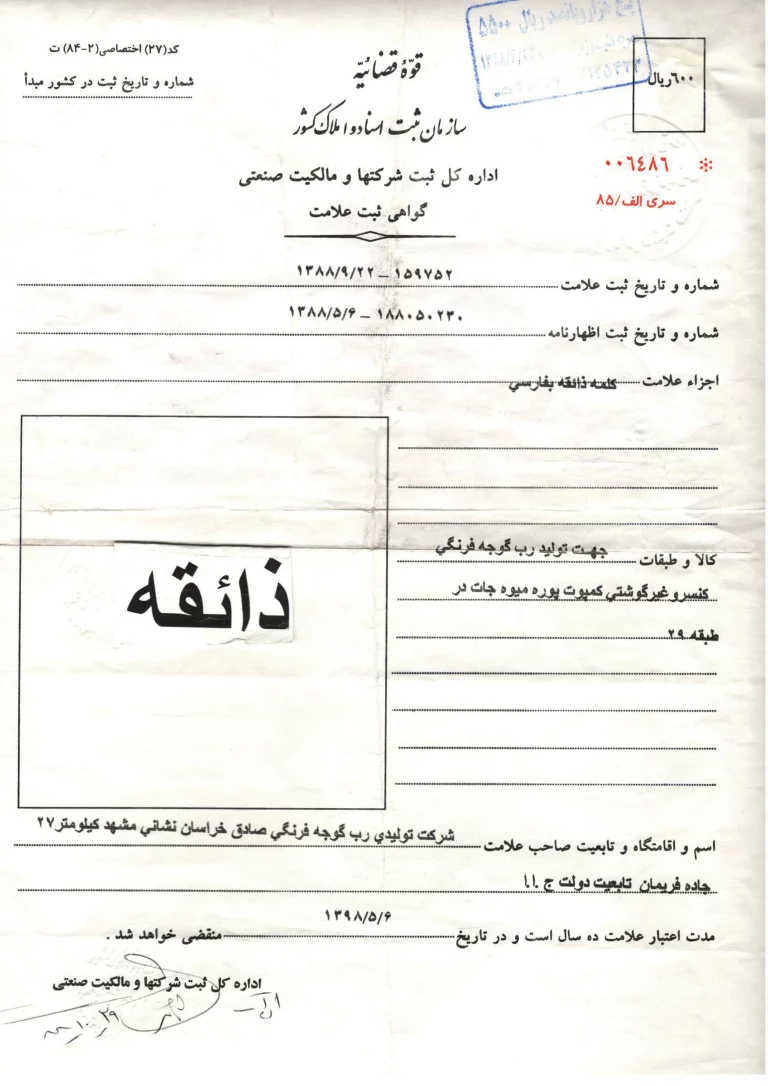 کد(۲۷) اختصاصی(۲-۸۴) ت
شماره و تاریخ ثبت در کشور مبدأ
قوّهٔ قضائیّه
سازمان ثبت اسناد و املاک کشور
اداره کل ثبت شرکتها و مالکیت صنعتی
گواهی ثبت علامت
ریال ۵۵۰۰
۶۰۰ ریال
۰۰٦٤٨٦
سری الف/۸۵
۱۵۹۷۵۲ – ۱۳۸۸/۹/۲۲
شماره و تاریخ ثبت علامت
۱۸۸۰۵۰۲۳۰ – ۱۳۸۸/۵/۶
شماره و تاریخ ثبت اظهارنامه
اجزاء علامت کلمه ذائقه بفارسي
کالا و طبقات جهت تولید رب گوجه فرنگي
کنسرو غیرگوشتي کمپوت پوره میوه جات در
طبقه ۲۹
ذائقه
اسم و اقامتگاه و تابعیت صاحب علامت شرکت تولیدي رب گوجه فرنگي صادق خراسان نشاني مشهد کیلومتر۲۷
جاده فریمان تابعیت دولت ج.ا.ا
مدت اعتبار علامت ده سال است و در تاریخ ۱۳۹۸/۵/۶ منقضی خواهد شد .
اداره کل ثبت شرکتها و مالکیت صنعتی